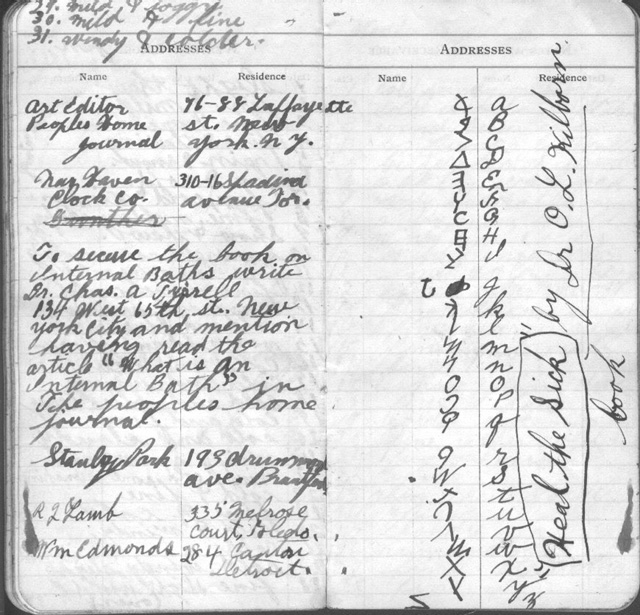 29. Mild & foggy
30. Mild & fine
31. Windy & colder.
ADDRESSES
Name Residence
Art Editor 76-88 Laffayette
Peoples Home st. New
journal york. N. Y.
Nar Haven 310-16 Spadina
Clock Co. avenue Tor.
To secure the book on
Internal Baths write
Dr. Chas. A Tyrrell
134 West 65th, st. New
york City and mention
having read the
article "What is an
Internal Bath" in
The peoples home
journal.
Stanley Park 193 drummon
ave. Brantford
R J Lamb 335 Melrose
Court, Toledo.
Wm Edmonds 284 Canton
Detroit.
ADDRESSES
Name Residence
a
B
C
D
E
F
G
H
I
j
k
l
m
n
o
p
q
r
s
t
u
v
w
x
y
z
"Heal the Sick" by Dr O. L. Kilborn
book